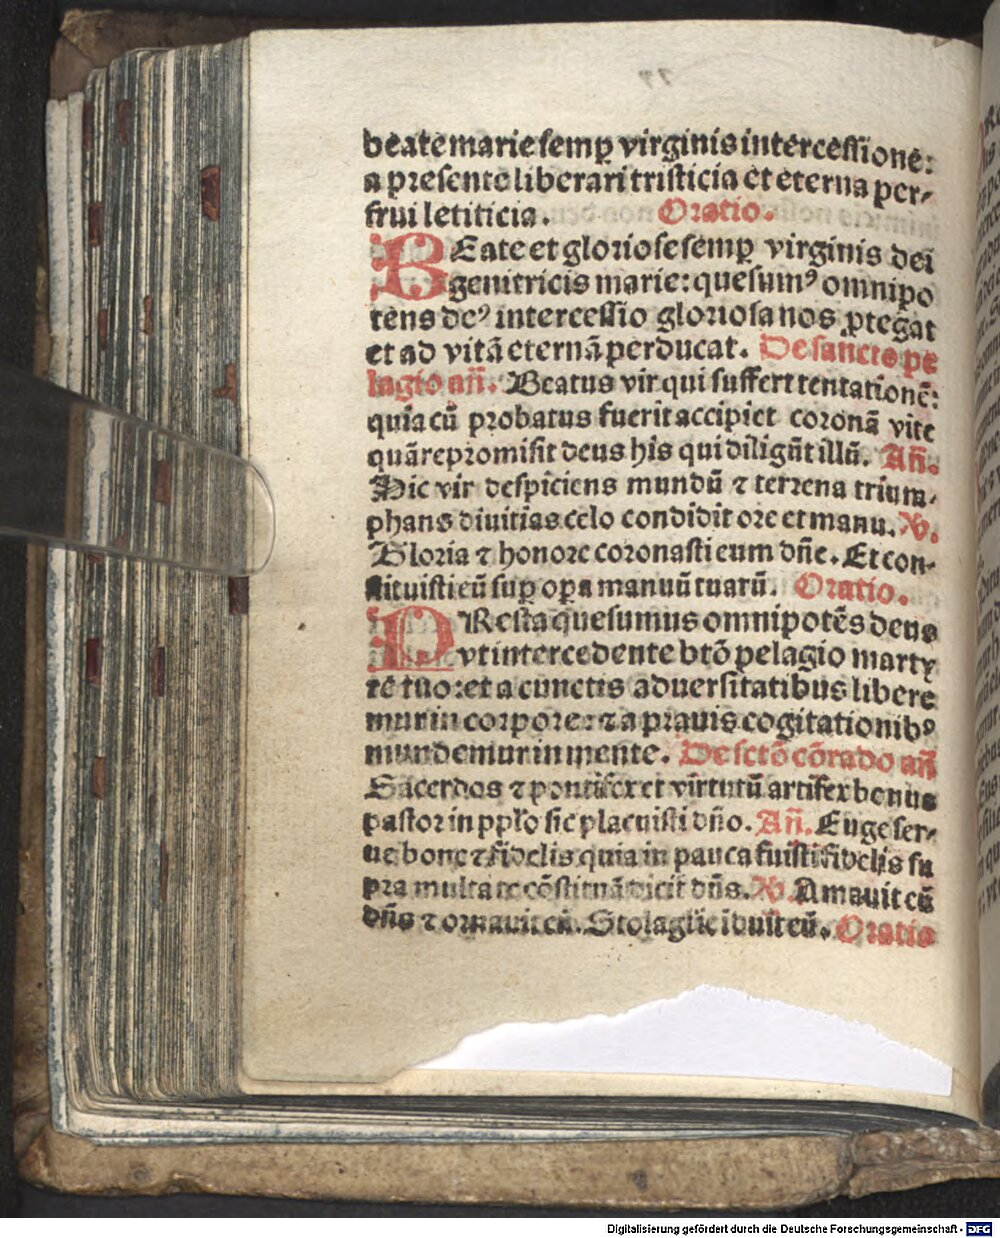 beate marie semꝑ virginis intercessione:
a presente liberari tristicia et eterna per⸗
frui letiticia. Oratio.
BEate et gloriose semꝑ virginis dei
genitricis marie: quesumꝰ omnipo
tens deꝰ intercessio gloriosa nos ꝓtegat
et ad vitā eternā perducat. De sancto pe
lagio añ. Beatus vir qui suffert tentationē:
quia cū probatus fuerit accipiet coronā vite
quā repromisit deus his qui diligūt illū. Añ.
Hic vir despiciens mundū ⁊ terrena trium⸗
phans diuitias celo condidit ore et manu. ℣.
Gloria ⁊ honore coronasti eum dñe. Et con⸗
stituisti eū suꝑ oꝑa manuū tuarū. Oratio.
PResta quesumus omnipotēs deus
vt intercedente btō pelagio marty
re tuo: et a cunctis aduersitatibus libere
mur in corpore: ⁊ a prauis cogitationibꝰ
mundemur in mente. De sctō cōrado añ
Sacerdos ⁊ pontifex et virtutū artifex bonus
pastor in pplo sic placuisti dño. Añ. Euge ser⸗
ue bone ⁊ fidelis quia in pauca fuisti fidelis su
pra multa te cōstituā dicit dñs. ℣. Amauit eū
dñs ⁊ ornauit eū. Stolā glīe iduit eū. Oratio
Digitalisierung gefördert durch die Deutsche Forschungsgemeinschaft - DFG